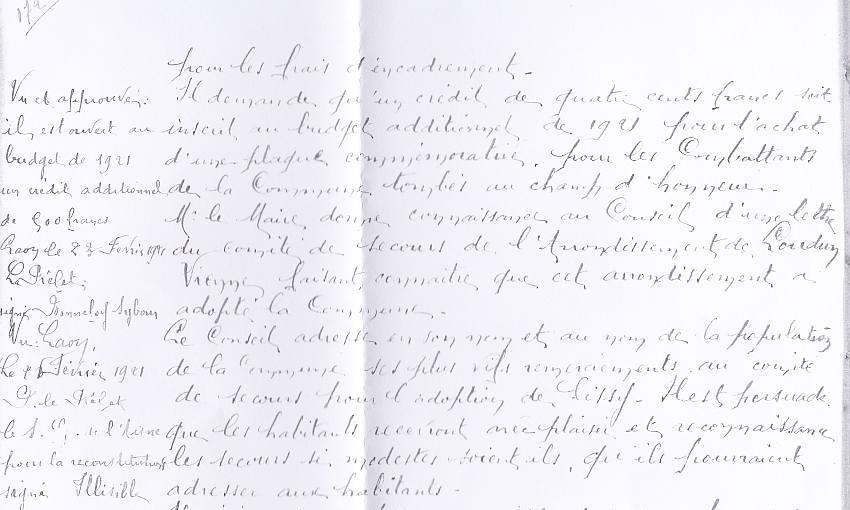 172
pour les frais d'encadrement.
Il demande qu'un crédit de quatre cents francs soit
inscrit au budget additionnel de 1921 pour l'achat
d'une plaque commémorative, pour les Combattants
de la Commune tombés au champ d'honneur.
Mr le Maire donne connaissance au Conseil d'une lettre
du comité de secours de l'Arrondissement de Loudun
Vienne faisant connaître que cet arrondissement a
adopté la Commune.
Le Conseil adresse en son nom et au nom de la population
de la Commune ses plus vifs remerciements au comité
de secours pour l'adoption de Lissy. Il est persuadé
que les habitants recevront avec plaisir et reconnaissance
les secours si modestes soient ils, qu'ils pourraient
adresser aux habitants.
Vu et approuvé:
il est ouvert au
budget de 1921
un crédit additionnel
de 900 francs
Laon le 23 Février 1921
Le Préfet,
signé
Vu: Laon,
Le 26 Février 1921
P. le Préfet
le S. de l'Aisne
pour la reconstitution
signé Illisible